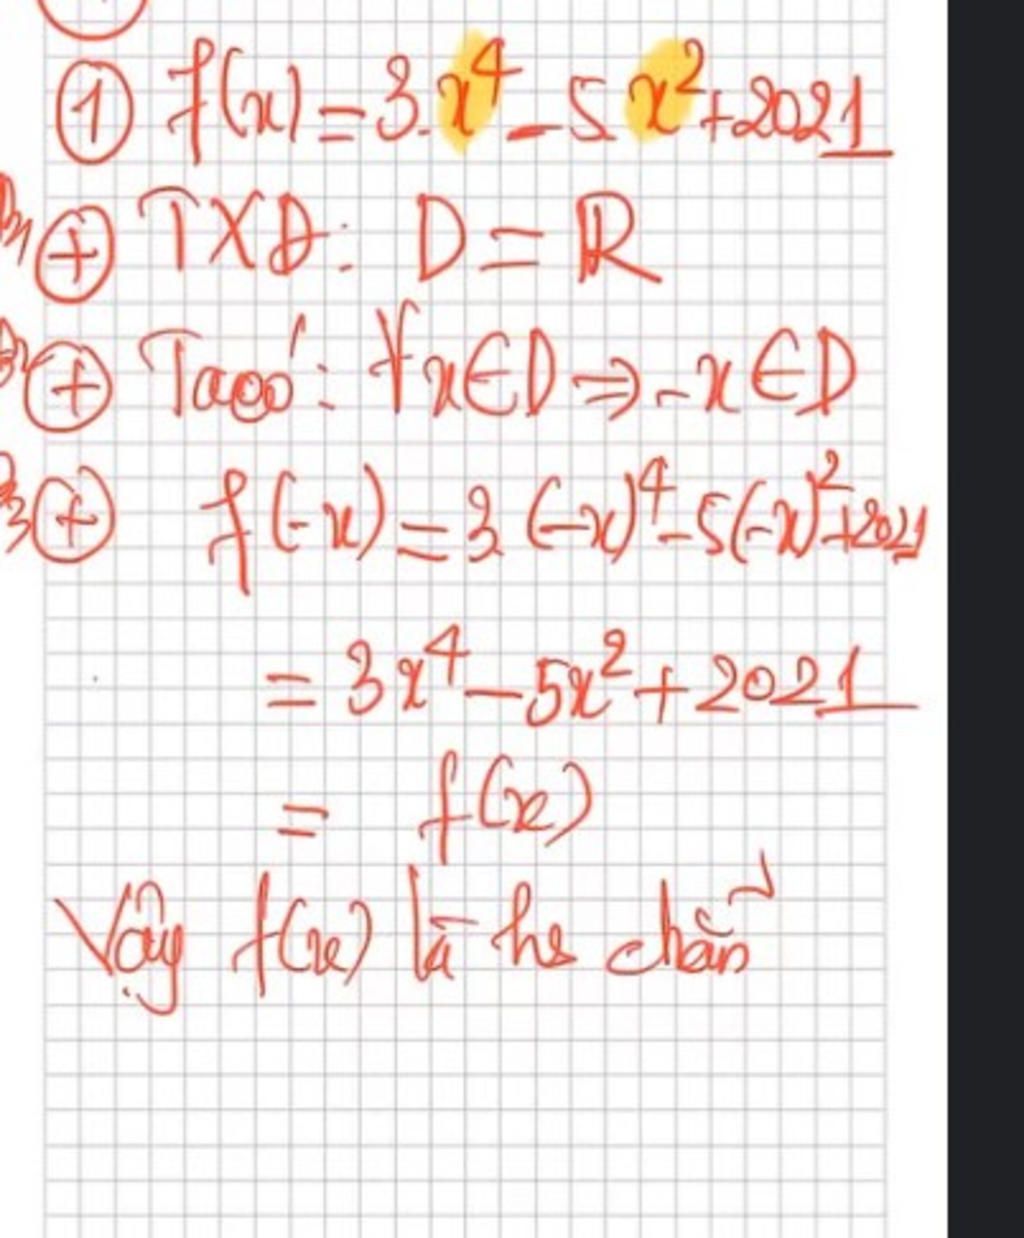 ① f(x) = 3.x⁴ - 5x² + 2021
B1 ⊕ TXĐ: D = ℝ
B2 ⊕ Ta có: ∀x∈D ⇒ -x∈D
B3 ⊕ f(-x) = 3(-x)⁴ - 5(-x)² + 2021
= 3x⁴ - 5x² + 2021
= f(x)
Vậy f(x) là hs chẵn